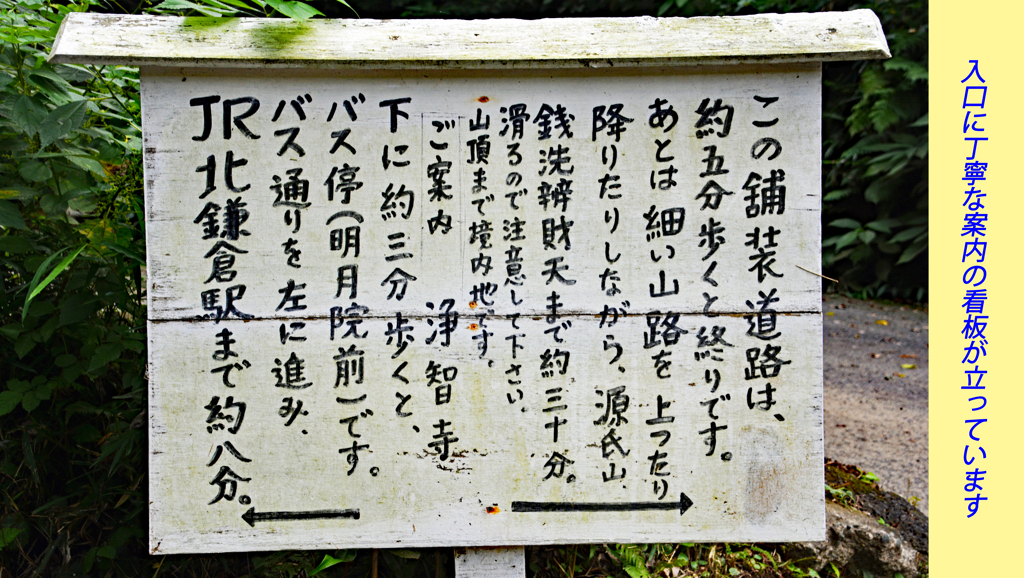 この舗装道路は、
約五分歩くと終りです。
あとは細い山路を上ったり
降りたりしながら、源氏山、
銭洗辨財天まで約三十分。
滑るので注意して下さい、
山頂まで境内地です。
ご案内 浄智寺
下に約三分歩くと、
バス停(明月院前)です。
バス通りを左に進み、
JR北鎌倉駅まで約八分。
入口に丁寧な案内の看板が立っています